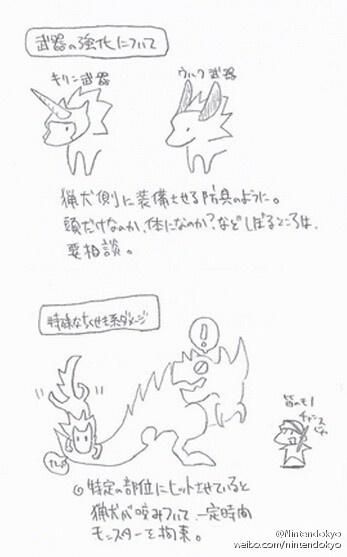 武器の強化について
キリン武器
ウルク武器
猟犬側に装備させる防具のように。
頭だけなのか、体になのか?などしばるところは、
要相談。
特殊なちくせき系ダメージ
!
皆のもの
チャンス
じゃ
◎特定の部位にヒットさせていると
猟犬が咬みついて一定時間
モンスターを拘束。
@Nintendokyo
weibo.com/nintendokyo